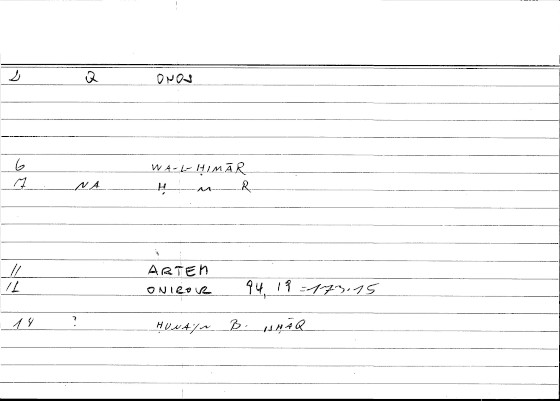 2 Q ONOS
6 WA-L-ḤIMĀR
7 NA Ḥ M R
11 ARTEM
12 ONIROCR 94, 19 = 173.15
14 ? ḤUNAYN B. ISḤĀQ